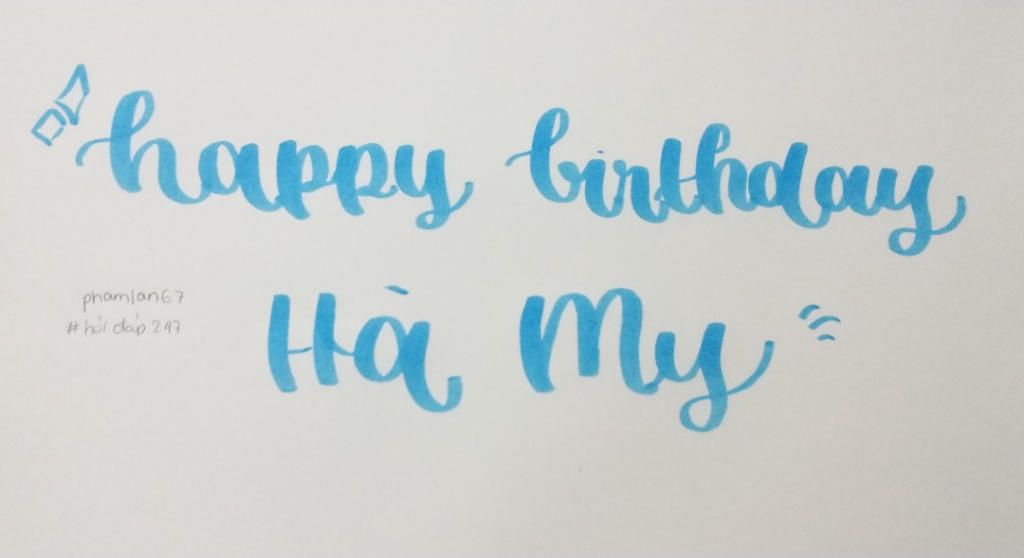 happy birthday
Hà My
phamlan67
#hỏi đáp 247